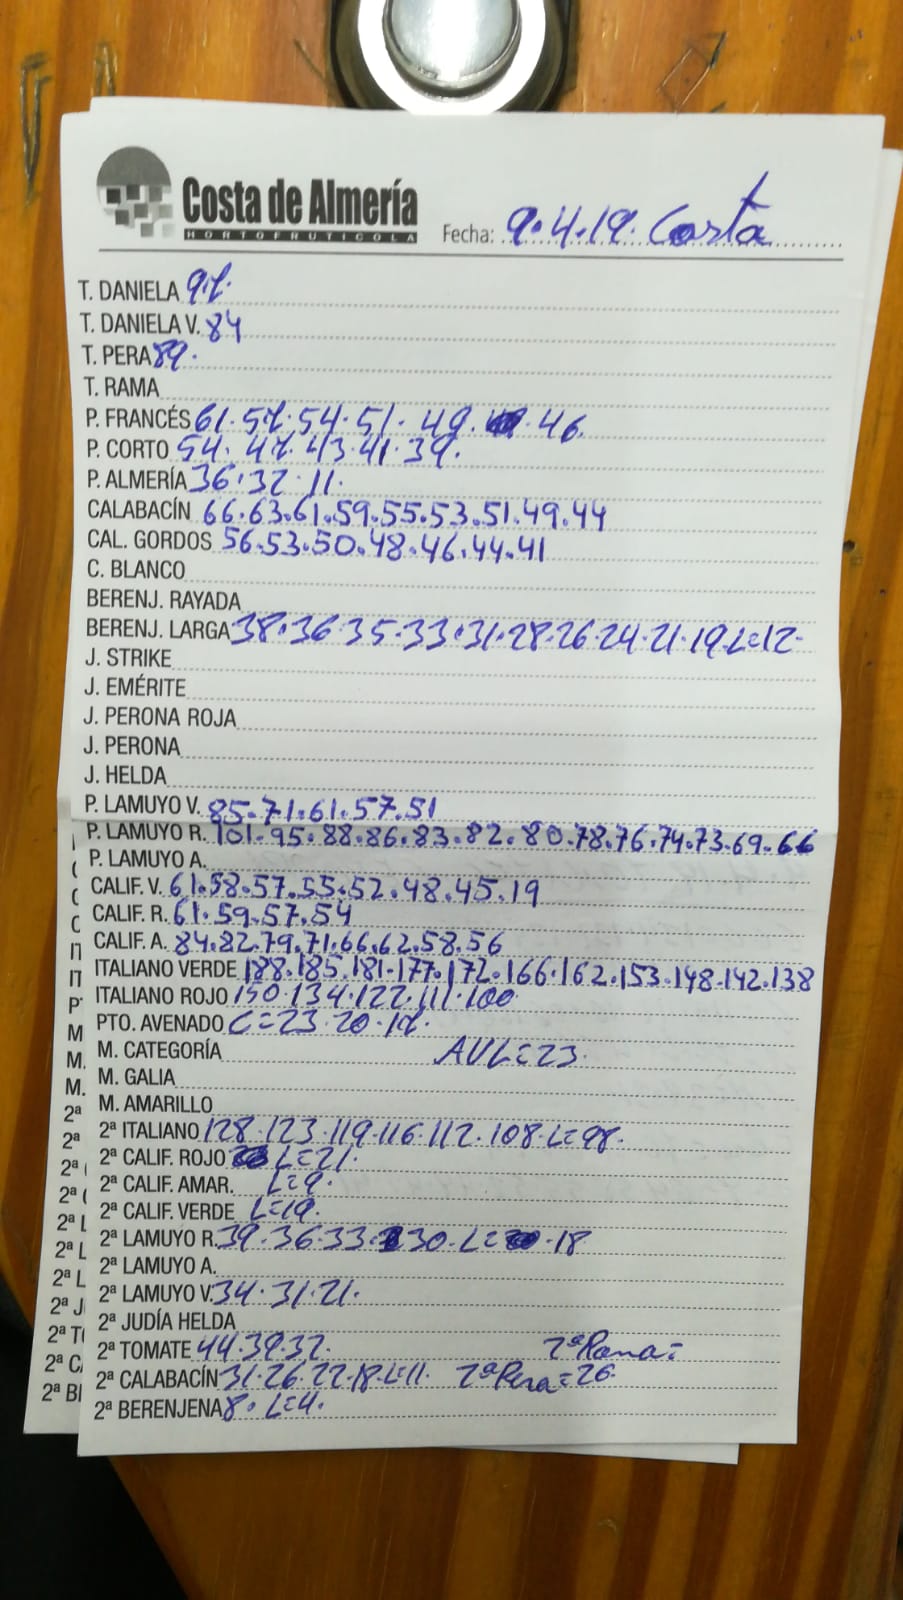 Costa de Almería
HORTOFRUTICOLA
Fecha: 9.4.19. Costa
T. DANIELA 97.
T. DANIELA V. 84
T. PERA 89.
T. RAMA
P. FRANCÉS 61.57.54.51.49. .46.
P. CORTO 54.47.43.41.39.
P. ALMERÍA 36.32.11.
CALABACÍN 66.63.61.59.55.53.51.49.44
CAL. GORDOS 56.53.50.48.46.44.41
C. BLANCO
BERENJ. RAYADA
BERENJ. LARGA 38.36.35.33.31.28.26.24.21.19.L=12.
J. STRIKE
J. EMÉRITE
J. PERONA ROJA
J. PERONA
J. HELDA
P. LAMUYO V. 85.71.61.57.51
P. LAMUYO R. 101.95.88.86.83.82.80.78.76.74.73.69.66
P. LAMUYO A.
CALIF. V. 61.58.57.55.52.48.45.19
CALIF. R. 61.59.57.54
CALIF. A. 84.82.79.71.66.62.58.56
ITALIANO VERDE 188.185.181.177.172.166.162.153.148.142.138
ITALIANO ROJO 150.134.122.111.100
PTO. AVENADO C=23.20.17.
M. CATEGORÍA AVL=23.
M. GALIA
M. AMARILLO
2ª ITALIANO 128.123.119.116.112.108.L=98.
2ª CALIF. ROJO L=21.
2ª CALIF. AMAR. L=9.
2ª CALIF. VERDE L=19.
2ª LAMUYO R. 39.36.33. 30.L= .18
2ª LAMUYO A.
2ª LAMUYO V. 34.31.21.
2ª JUDÍA HELDA
2ª TOMATE 44.39.32. 2ªRama=
2ª CALABACÍN 31.26.22.18.L=11. 2ªPera=26.
2ª BERENJENA 8. L=4.